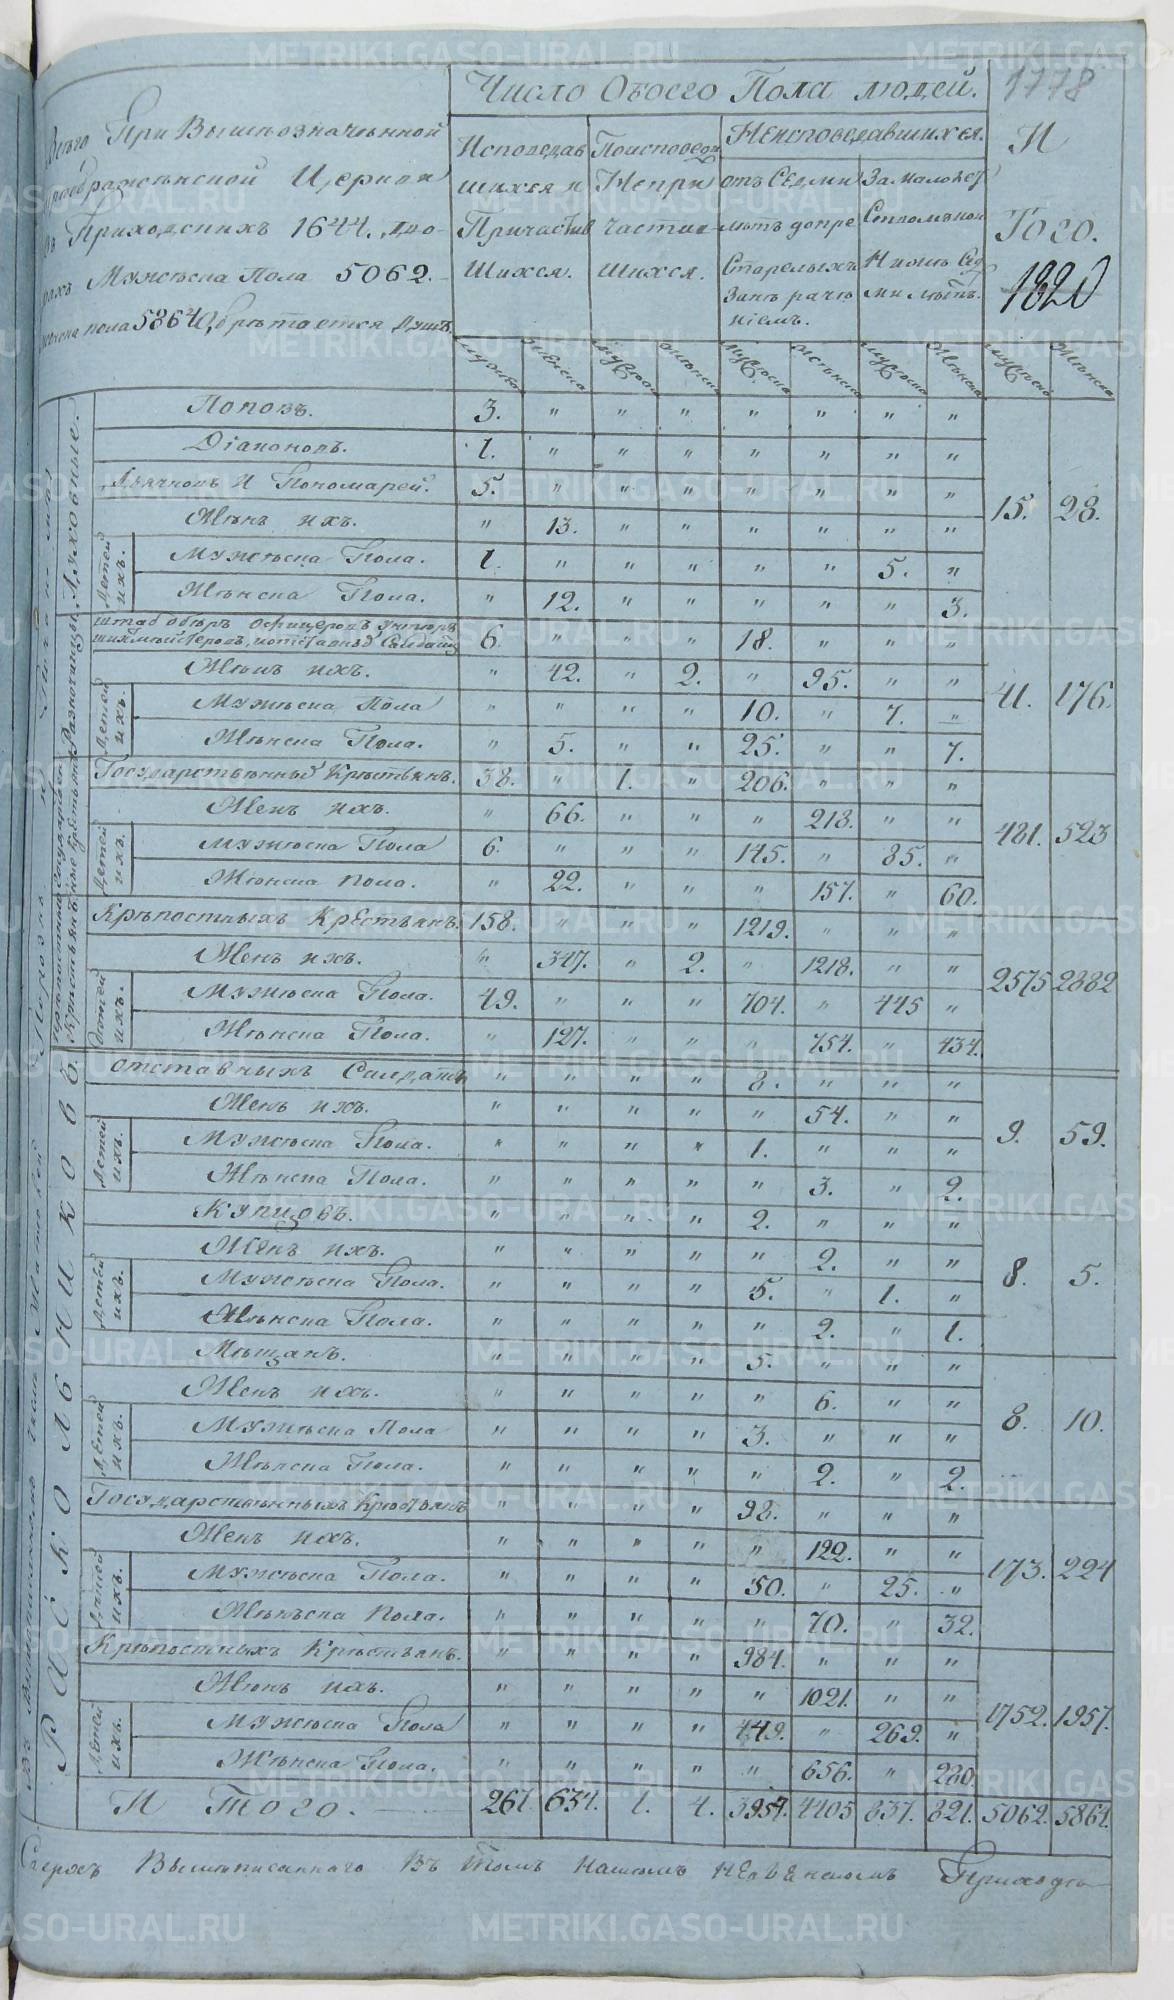 Число Обоего Пола людей.
1778
При Вышеозначенной
Церкви
Приходскихъ 1644. дво-
рахъ Мужеска Пола 5062.
пола 5864 Обретается Душъ.
Исповедав
шихся и
Причастив
шихся.
Поисповеди
Непри
частив
шихся.
Неисповедавшихся.
отъ Седми
летъ допре
старелыхъ
Занерачѣ
нiемъ.
Замалолет
ствомъ
Ниже Сед
ми летъ.
И
Того.
1820
мужска женска мужска женска мужеска женска мужеска женска мужеска женска
Духовные.
Поповъ. 3. " " " " " " "
Дiаконовъ. 1. " " " " " " "
Дьячковъ И Пономарей. 5. " " " " " " "
15. 28.
Женъ ихъ. " 13. " " " " " "
Детей ихъ.
Мужеска Пола. 1. " " " " " 5. "
Женска Пола. " 12. " " " " " 3.
Разночинцы
штаб обер офицеровъ унтер
6. " " " 18. " " "
Женъ ихъ. " 42. " 2. " 95. " "
41. 176.
Детей ихъ.
Мужеска Пола " " " " 10. " 7. "
Женска Пола. " 5. " " 25. " " 7.
Государственныхъ Крестьянъ. 38. " 1. " 206. " " "
Женъ ихъ. " 66. " " " 218. " "
481. 523
Детей ихъ.
Мужеска Пола 6. " " " 145. " 85. "
Женска Пола. " 22. " " " 157. " 60.
Крепостныхъ Крестьянъ. 158. " " " 1219. " " "
Женъ ихъ. " 347. " 2. " 1218. " "
2575 2882
Детей ихъ.
Мужеска Пола. 49. " " " 704. " 445 "
Женска Пола. " 127. " " " 754. " 434.
Раскольниковъ.
отставныхъ Салдатъ " " " " 8. " " "
Женъ ихъ. " " " " " 54. " "
9. 59.
Детей ихъ.
Мужеска Пола. " " " " 1. " " "
Женска Пола. " " " " " 3. " 2.
Купцовъ. " " " " 2. " " "
Женъ ихъ. " " " " " 2. " "
8. 5.
Детей ихъ.
Мужеска Пола. " " " " 5. " 1. "
Женска Пола. " " " " " 2. " 1.
Мещанъ. " " " " 5. " " "
Женъ ихъ. " " " " " 6. " "
8. 10.
Детей ихъ.
Мужеска Пола " " " " 3. " " "
Женска Пола. " " " " " 2. " 2.
Государственныхъ Крестьянъ " " " " 98. " " "
Женъ ихъ. " " " " " 122. " "
173. 224
Детей ихъ.
Мужеска Пола. " " " " 50. " 25. "
Женска Пола. " " " " " 70. " 32.
Крепостныхъ Крестьянъ. " " " " 984. " " "
Женъ ихъ. " " " " " 1021. " "
1752. 1957.
Детей ихъ.
Мужеска Пола " " " " 449. " 269. "
Женска Пола. " " " " " 656. " 280.
И того. 267. 634. 1. 4. 3957. 4405 837. 821. 5062. 5864.
Вышеписаннаго Въ томъ нашемъ невьянскомъ Приходе
METRIKI.GASO-URAL.RU